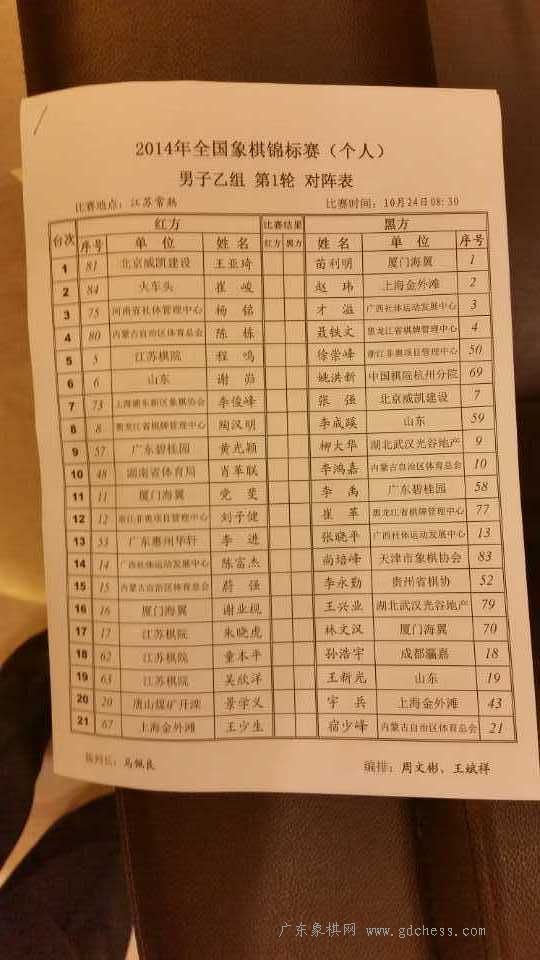 2014年全国象棋锦标赛（个人）
男子乙组 第1轮 对阵表
比赛地点：江苏常熟 比赛时间：10月24日08:30
台次 红方 比赛结果 黑方
序号 单位 姓名 红方 黑方 姓名 单位 序号
1 81 北京威凯建设 王亚琦 苗利明 厦门海翼 1
2 84 火车头 崔峻 赵玮 上海金外滩 2
3 75 河南省社体管理中心 杨铭 才溢 广西社体运动发展中心 3
4 80 内蒙古自治区体育总会 陈栋 聂铁文 黑龙江省棋牌管理中心 4
5 5 江苏棋院 程鸣 徐崇峰 浙江非奥项目管理中心 50
6 6 山东 谢岿 姚洪新 中国棋院杭州分院 69
7 73 上海浦东新区象棋协会 李俊峰 张强 北京威凯建设 7
8 8 黑龙江省棋牌管理中心 陶汉明 李成蹊 山东 59
9 57 广东碧桂园 黄光颖 柳大华 湖北武汉光谷地产 9
10 48 湖南省体育局 肖革联 李鸿嘉 内蒙古自治区体育总会 10
11 11 厦门海翼 党斐 李禹 广东碧桂园 58
12 12 浙江非奥项目管理中心 刘子健 崔革 黑龙江省棋牌管理中心 77
13 53 广东惠州华轩 李进 张晓平 广西社体运动发展中心 13
14 14 广西社体运动发展中心 陈富杰 尚培峰 天津市象棋协会 83
15 15 内蒙古自治区体育总会 蔚强 李永勤 贵州省棋协 52
16 16 厦门海翼 谢业枧 王兴业 湖北武汉光谷地产 79
17 17 江苏棋院 朱晓虎 林文汉 厦门海翼 70
18 62 江苏棋院 童本平 孙浩宇 成都瀛嘉 18
19 63 江苏棋院 吴欣洋 王新光 山东 19
20 20 唐山煤矿开滦 景学义 宇兵 上海金外滩 43
21 67 上海金外滩 王少生 宿少峰 内蒙古自治区体育总会 21
裁判长：马佩良 编排：周文彬、王斌祥
广东象棋网 www.gdchess.com